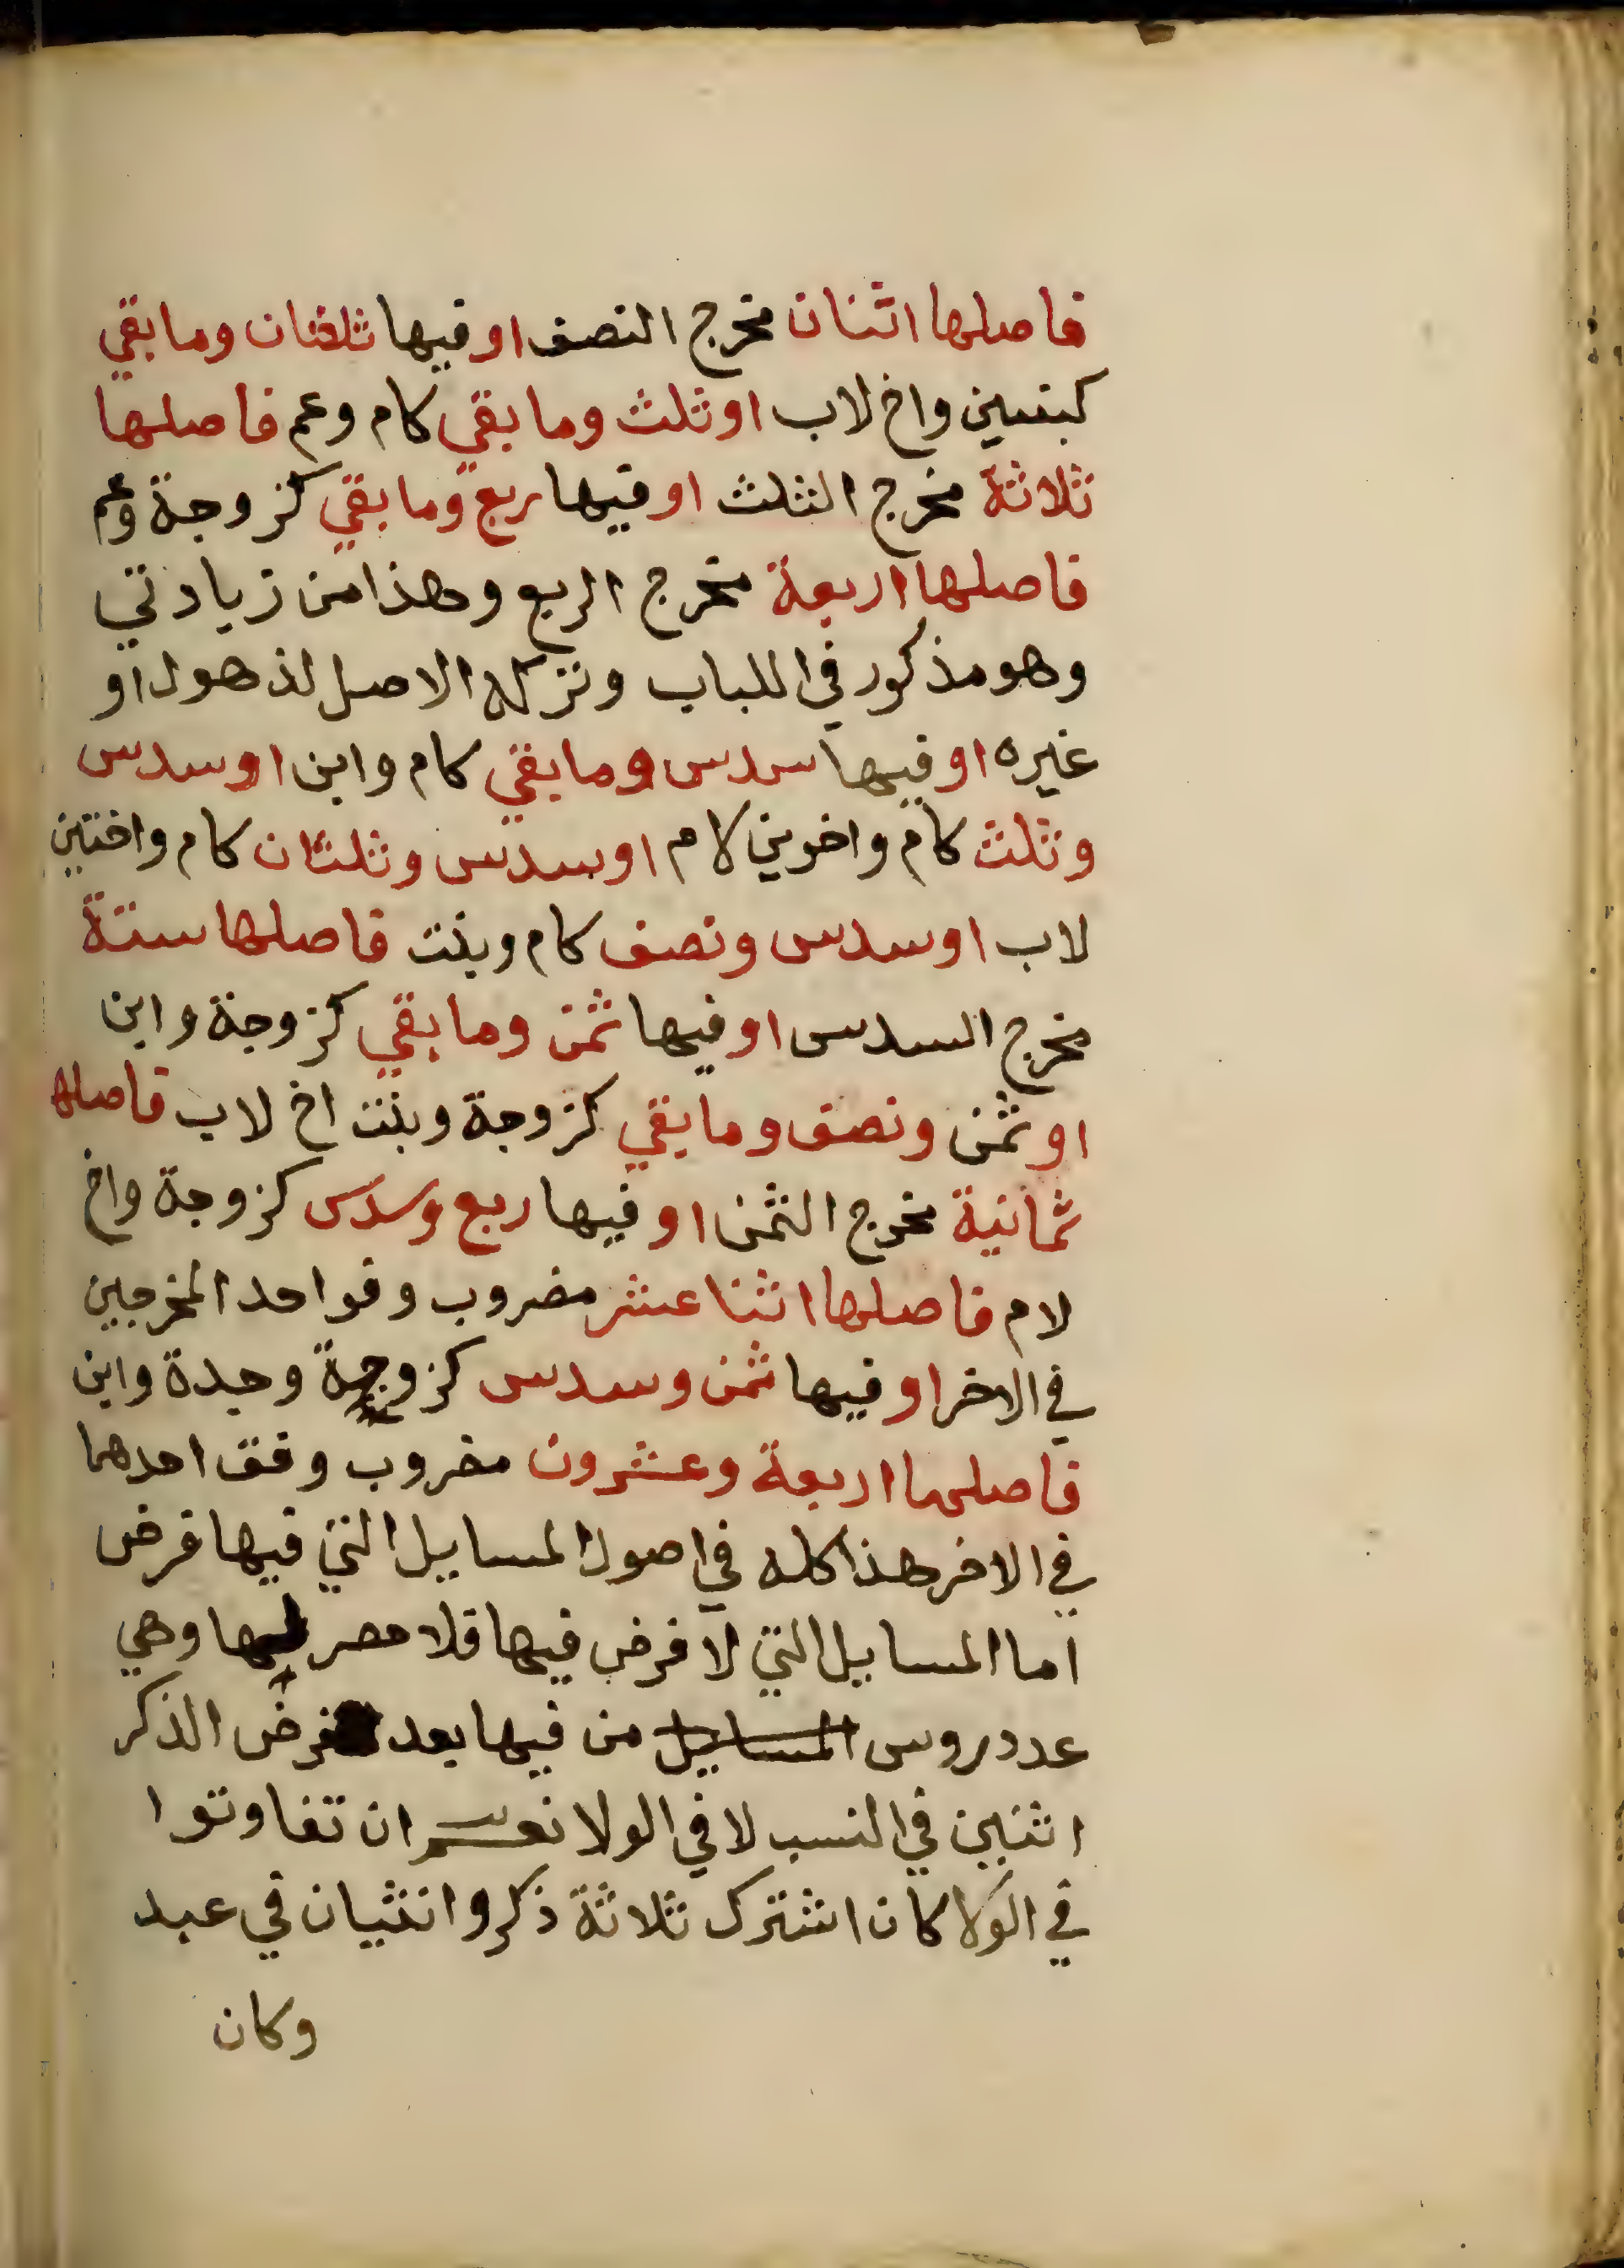 فاصلها اثنان مخرج النصف او فيها ثلثان وما بقي
كبنتين واخ لاب او ثلث وما بقي كام وعم فاصلها
ثلاثة مخرج الثلث او فيها ربع وما بقي كزوجة وعم
فاصلها اربعة مخرج الربع وهذا من زيادتي
وهو مذكور في اللباب وتركه الاصل لذهول او
غيره او فيها سدس وما بقي كام وابن او سدس
وثلث كام واخوين لام او سدس وثلثان كام واختين
لاب او سدس ونصف كام وبنت فاصلها ستة
مخرج السدس او فيها ثمن وما بقي كزوجة وابن
او ثمن ونصف وما بقي كزوجة وبنت اخ لاب فاصلها
ثمانية مخرج الثمن او فيها ربع وسدس كزوجة واخ
لام فاصلها اثنا عشر مضروب وفو احد المخرجين
في الاخر او فيها ثمن وسدس كزوجة وجدة وابن
فاصلها اربعة وعشرون مضروب وفق احدهما
في الاخر هذا كله في اصول المسايل التي فيها فرض
اما المسايل التي لا فرض فيها فلا حصر لها وهي
عدد روس المسايل من فيها بعد فرض الذكر
اثنين في النسب لا في الولا نعم ان تفاوتوا
في الولا كان اشترك ثلاثة ذكر وانثيان في عبد
وكان